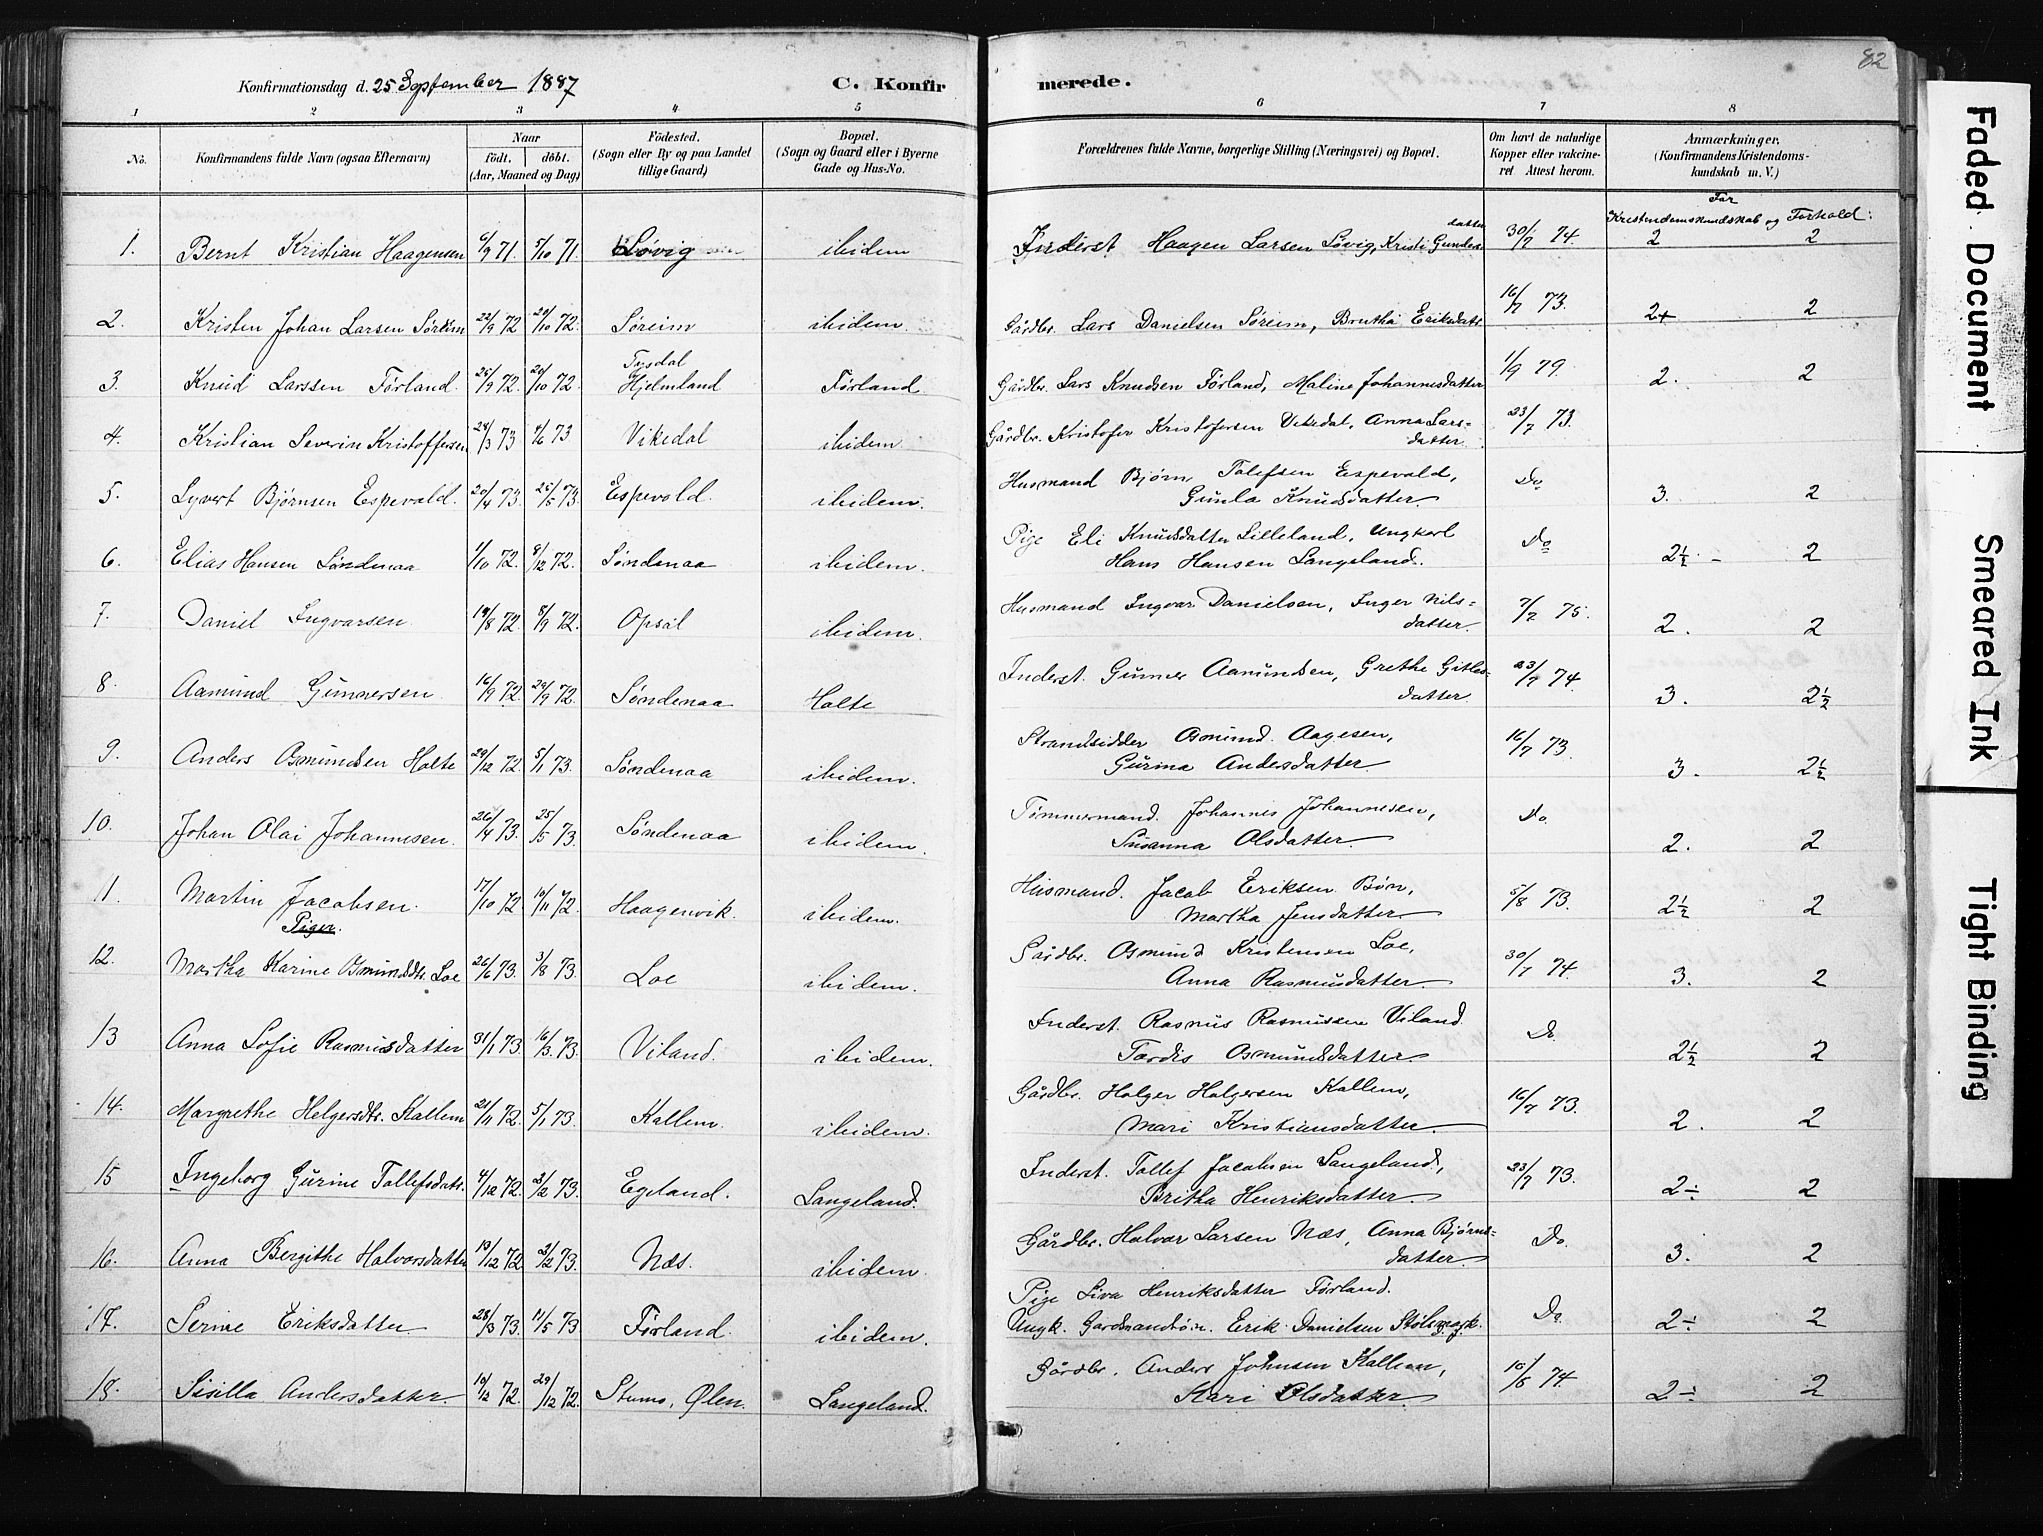 82
Konfirmationsdag d. 25 September 1887 C. Konfir merede.
1 2 3 4 5 6 7 8
No. Konfirmandens fulde Navn (ogsaa Efternavn) Naar født. døbt. (Aar, Maaned og Dag) Födested. (Sogn eller By og paa Landet tillige Gaard) Bopæl. (Sogn og Gaard eller i Byerne Gade og Hus-No. Forældrenes fulde Navne, borgerlige Stilling (Næringsvei) og Bopæl. Om havt de naturlige Kopper eller vakcineret Attest herom. Anmærkninger. (Konfirmandens Kristendomskundskab m. V.)
For
Kristendomskundskab og Forhold:
1. Bernt Kristian Haagensen 6/9 71. 5/10 71. Løvig ibidem Inderst Haagen Larsen Løvig, Kristi Gundersdatter 30/7 74. 2 2
2. Kristen Johan Larsen Søreim 22/9 72 29/10 72. Søreim ibidem. Gårdbr. Lars Danielsen Søreim, Brutha Eriksdatr. 16/7 73. 2+ 2
3. Knud Larssen Førland. 25/9 72. 20/10 72. Tysdal Hjelmland Førland. Gårdbr. Lars Knudsen Førland, Maline Johannesdatter 1/9 79 2. 2
4. Kristian Severin Kristoffersen 28/3 73 1/6 73 Vikedal ibidem. Gårdbr. Kristofer Kristofersen Vikedal, Anna Larsdatter. 23/7 73.
5. Syvert Bjørnsen Espevold. 20/4 73. 25/5 73 Espevold. ibidem. Husmand Bjørn Tolefsen Espevold, Gunla Knudsdatter Do 3. 2
6. Elias Hansen Søndenaa 1/10 72. 8/12 72. Søndenaa ibidem. Pige Eli Knudsdatter Lilleland, Ungkarl Hans Hansen Langeland. Do 2½ - 2
7. Daniel Ingvarsen. 19/8 72. 8/9 72. Opsal ibidem. Husmand Ingvar Danielsen, Inger Nilsdatter. 7/7 75. 2. 2
8. Aamund Gunnersen. 16/9 72. 29/9 72. Søndenaa Holte Inderst. Gunner Aamundsen, Grethe Gitlesdatter. 23/7 74. 3. 2½
9. Anders Osmundsen Holte 29/12 72. 5/1 73. Søndenaa ibidem. Strandsidder Osmund Aagesen, Gurina Andersdatter. 16/7 73. 3. 2½
10. Johan Olai Johannesen. 26/4 73. 25/5 73. Søndenaa ibidem. Tømmermand. Johannes Johannesen, Susanna Olsdatter Do. 2. 2
11. Martin Jacobsen. 17/10 72 10/11 72. Haagenvik. ibidem. Husmand. Jacob Eriksen Bøn, Martha Jensdatter 5/8 73. 2½ 2
Piger.
12. Martha Karine Osmundsdtr. Loe 26/6 73. 3/8 73. Loe ibidem. Gårdbr. Osmund Kristensen Loe, Anna Rasmusdatter. 30/7 74 3. 2
13 Anna Sofie Rasmusdatter 31/1 73. 16/3 73. Viland. ibidem. Inderst. Rasmus Rasmussen Viland. Tordis Osmundsdatter Do. 2½ 2
14. Margrethe Helgersdtr. Kallem 21/11 72. 5/1 73. Kallem. ibidem. Gårdbr. Holger Holgersen Kallem, Mari Kristiansdatter. 16/7 73. 2. 2
15 Ingeborg Gurine Tollefsdatr. 4/12 72. 2/2 73. Egeland. Langeland. Inderst. Tollef Jacobsen Langeland, Britha Henriksdatter 23/7 73. 2÷ 2
16. Anna Bergithe Halvorsdatter 13/12 72. 2/2 73. Næs. ibidem. Gårdbr. Halvor Larsen Næs, Anna Bjørnsdatter. Do. 3. 2
17. Serine Eriksdatter 28/3 73. 11/5 73 Førland. ibidem. Pige Siva Henriksdatter Førland. Ungk. Gardmandsøn. Erik Danielsen Do 2÷ 2
18. Sisilla Andersdatter. 10/12 72. 29/12 72. Stumo, Ølen. Langeland. Gårdbr. Anders Johnsen Kallem, Kari Olsdatter. 10/8 74. 2÷ 2
Faded Document
Smeared Ink
Tight Binding